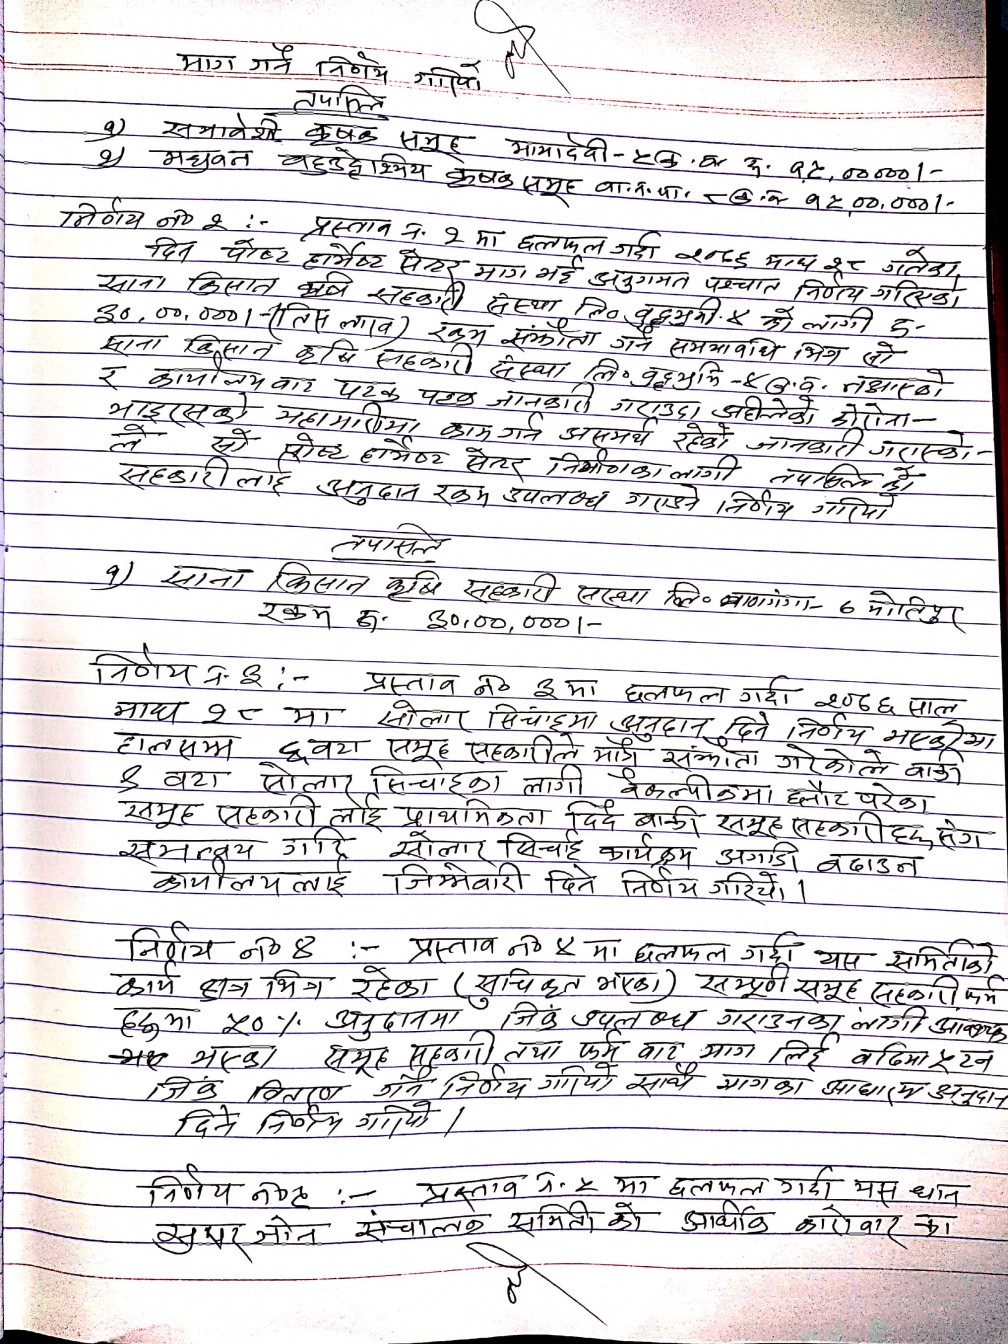 माग गर्ने निर्णय गरियो
तपसिल
१) समावेशी कृषक समूह मायादेवी-५ रु. १५,०००००।-
२) मधुवन बहुउद्देश्यिय कृषक समूह वा.न.पा. रु १५,००,०००।-
निर्णय नं० २ :- प्रस्ताव नं. २ मा छलफल गर्दा २०७६ माघ २८ गतेका
दिन पोष्ट हार्भेष्ट सेन्टर माग भई अनुगमन पश्चात निर्णय गरिएको
साना किसान कृषि सहकारी संस्था लि० बुद्धभुमी-४ को लागी रु.
३०,००,०००।-(तिस लाख) रकम संझौता गर्ने समयावधि भित्र सो
साना किसान कृषि सहकारी संस्था लि० बुद्धभुमि-४ नआएको
र कार्यालयबाट पटक पटक जानकारी गराउदा अहीलेको कोरोना-
भाइरसको महामारीमा काम गर्न असमर्थ रहेको जानकारी गराएको-
ले सो पोष्ट हार्भेष्ट सेन्टर निर्माणका लागी तपसिल को
सहकारीलाई अनुदान रकम उपलब्ध गराउने निर्णय गरियो
तपसिल
१) साना किसान कृषि सहकारी संस्था लि० बाणगंगा- ७ मोतिपुर
रकम रु. ३०,००,०००।-
निर्णय नं. ३ :- प्रस्ताव नं० ३ मा छलफल गर्दा २०७६ साल
माघ २८ मा सोलार सिचाइमा अनुदान दिने निर्णय भएकोमा
हालसम्म ६ वटा समूह सहकारीले मात्रै संझौता गरेकोले बाकी
३ वटा सोलार सिचाइका लागी वैकल्पीकमा छनौट परेका
समूह सहकारी लाई प्राथमिकता दिदै बाकी समूह सहकारी हरु संग
समन्वय गरि सोलार सिचाई कार्यक्रम अगाडी बढाउन
कार्यालय लाई जिम्मेवारी दिने निर्णय गरियो।
निर्णय नं० ४ :- प्रस्ताव नं० ४ मा छलफल गर्दा यस समितिको
कार्य क्षेत्र भित्र रहेका (सुचिकृत भएका) सम्पूर्ण समूह सहकारी फर्म
हरुमा ५०% अनुदानमा जिंक उपलब्ध गराउनका लागी आवश्यक
भएका समूह सहकारी तथा फर्म बाट माग लिई बढिमा ५ टन
जिंक वितरण गर्ने निर्णय गरियो साथै मागका आधारमा अनुदान
दिने निर्णय गरियो।
निर्णय नं० ५ :- प्रस्ताव नं. ५ मा छलफल गर्दा यस धान
सुपर जोन संचालक समिती को आर्थीक कारोवार का